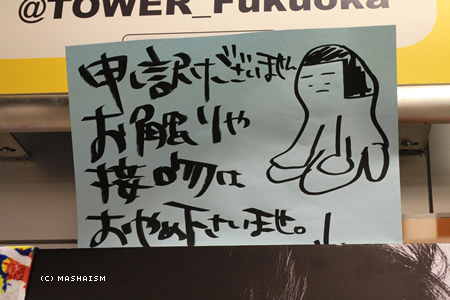 @TOWER_Fukuoka
申し訳ございません
お触りや
接吻は
おやめ下さいませ。
(C) MASHAISM